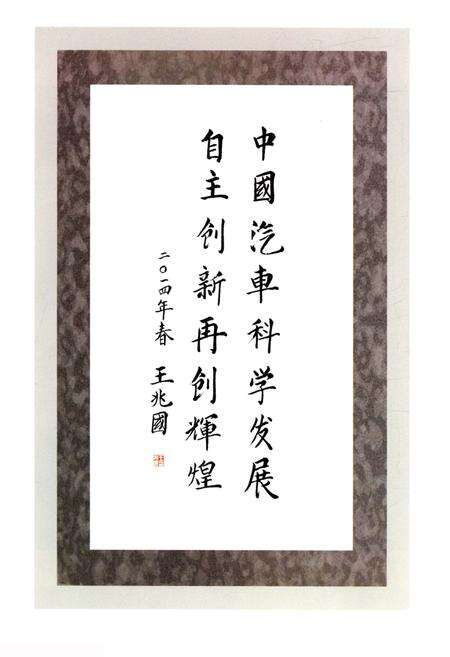 中國汽車科学发展
自主创新再创輝煌
二〇一四年春 王兆國